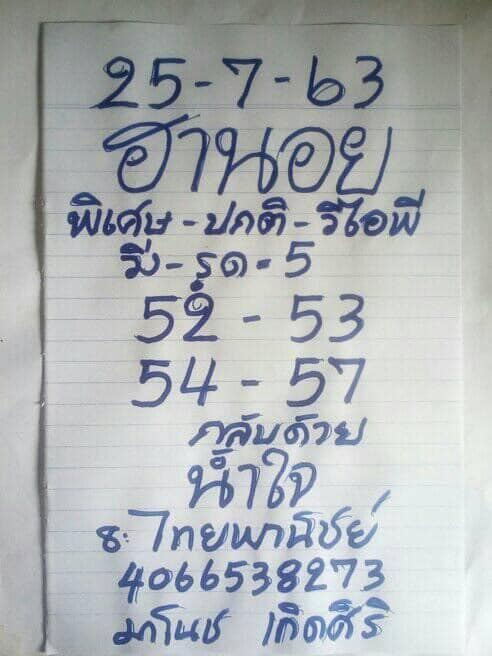 25-7-63
ฮานอย
พิเศษ-ปกติ-วีไอพี
วิ่ง-รูด=5
52-53
54-57
กลับด้วย
น้ำใจ
ธ: ไทยพานิชย์
4066538273
มาโนช เกิดศิริ